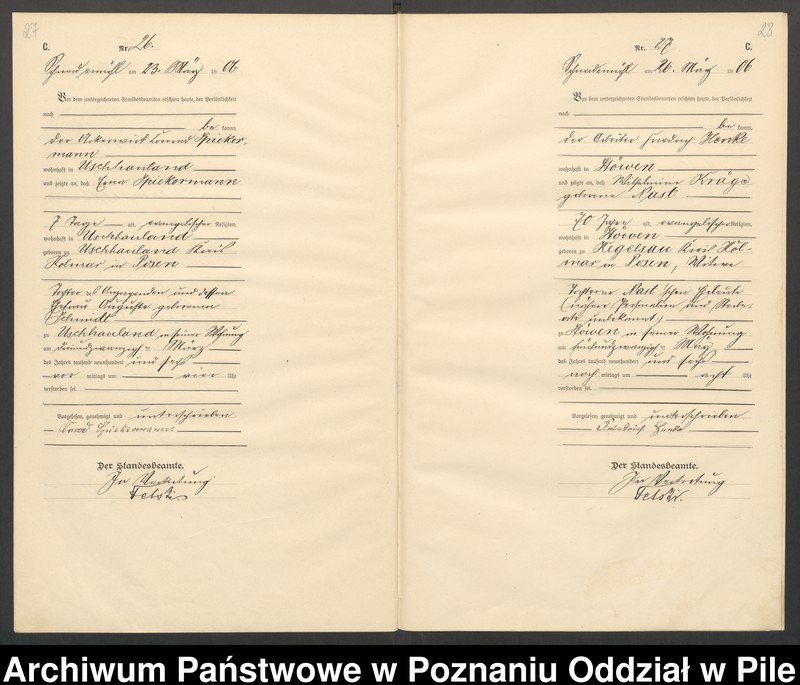 27
C.
Nr. 26.
Schneidemühl am 23. März 1906
Vor dem unterzeichneten Standesbeamten erschien heute, der Persönlichkeit
nach
be kannt,
der Ackerwirt Conrad Spieker-
mann
wohnhaft in Uschhauland
und zeigte an, daß Erna Spiekermann
7 Tage alt, evangelischer Religion,
wohnhaft in Uschhauland
geboren zu Uschhauland Kreis
Kolmar in Posen
Tochter des Anzeigenden und dessen
Ehefrau Auguste geborenen
Schmidt
zu Uschhauland in seiner Wohnung
am dreiundzwanzigsten März
des Jahres tausend neunhundert und sechs
vor mittags um vier Uhr
verstorben sei.
Vorgelesen, genehmigt und unterschrieben
Conrad Spiekermann.
Der Standesbeamte.
In Vertretung
28
Nr. 27
C.
Schneidemühl am 26. März 1906
Vor dem unterzeichneten Standesbeamten erschien heute, der Persönlichkeit
nach
be kannt,
der Arbeiter Friedrich Henke
wohnhaft in Höwen
und zeigte an, daß Wilhelmine
geborene Nast
70 Jahre alt, evangelischer Religion,
wohnhaft in Höwen
geboren zu Kreis Kol-
mar in Posen, Witwe
Tochter der Nast'schen Eheleute
(nähere Personalien und Sterbe-
orte unbekannt)
zu Höwen in seiner Wohnung
am fünfundzwanzigsten März
des Jahres tausend neunhundert und sechs
nach mittags um acht Uhr
verstorben sei.
Vorgelesen, genehmigt und unterschrieben
Friedrich Henke
Der Standesbeamte.
In Vertretung
Archiwum Państwowe w Poznaniu Oddział w Pile